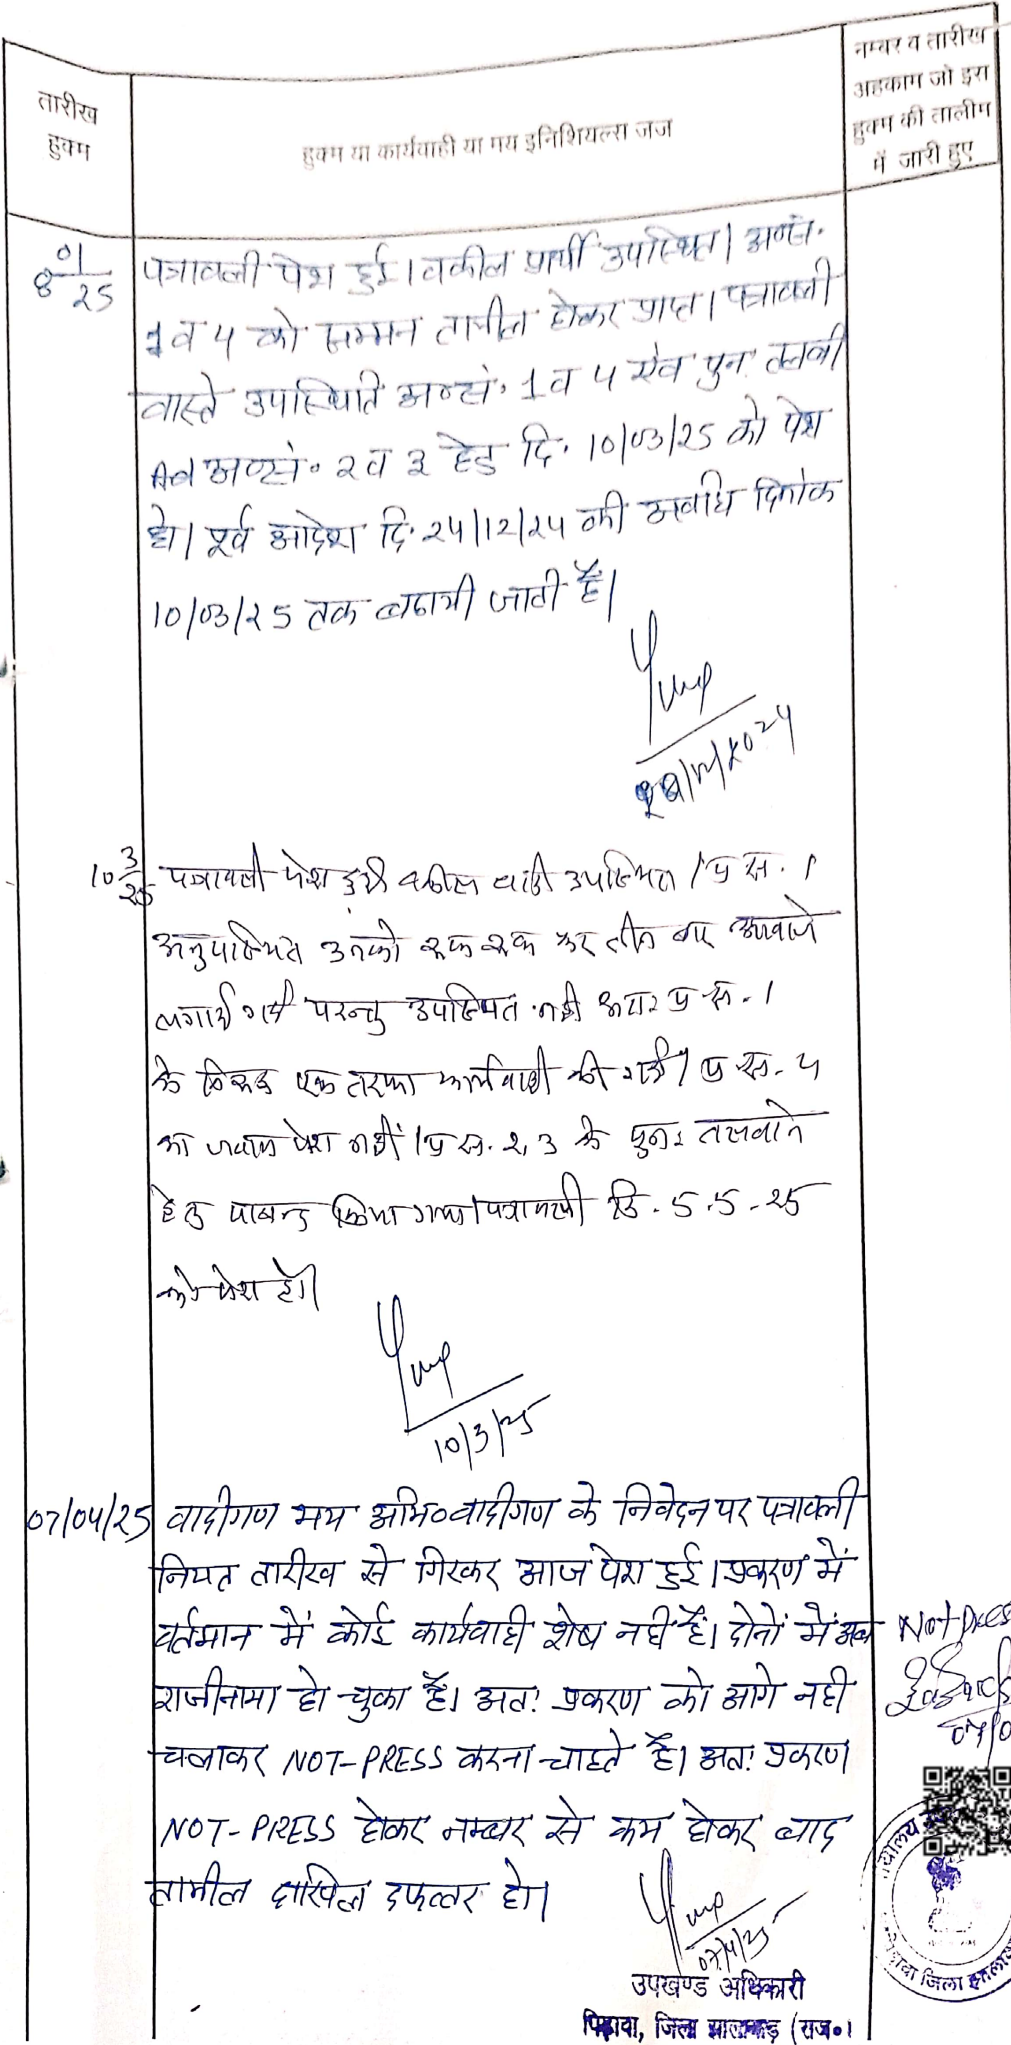 तारीख
हुक्म
हुक्म या कार्यवाही या मय इनिशियल्स जज
नम्बर व तारीख
अहकाम जो इस
हुक्म की तालीम
में जारी हुए
8 01/25
पत्रावली पेश हुई। वकील प्रार्थी उपस्थित। अप्रा.सं.
1 व 4 को सम्मन तामील होकर प्राप्त। पत्रावली
वास्ते उपस्थिति अप्रा.सं. 1 व 4 एवं पुनः तलबी
अप्रा.सं. 2 व 3 हेतु दि. 10/03/25 को पेश
हो। पूर्व आदेश दि. 24/12/24 की अवधि दिनांक
10/03/25 तक बढायी जाती है।
10 3/25
पत्रावली पेश हुयी वकील वादी उपस्थित। प्र सं. 1
अनुपस्थित उनको एक एक कर तीन बार आवाजे
लगाई गयी परन्तु उपस्थित नही अतः प्र सं. 1
के विरूद्ध एक तरफा कार्यवाही की गयी। प्र सं. 4
का जवाब पेश नहीं। प्र सं. 2, 3 के पुनः तलवाने
हेतु पाबन्द किया गया। पत्रावली दि. 5.5.25
को पेश हो।
10/3/25
07/04/25
वादीगण मय अभि०वादीगण के निवेदन पर पत्रावली
नियत तारीख से गिरकर आज पेश हुई। प्रकरण में
वर्तमान में कोई कार्यवाही शेष नही है। दोनों में अब
राजीनामा हो चुका है। अतः प्रकरण को आगे नही
चलाकर NOT-PRESS करना चाहते है। अतः प्रकरण
NOT-PRESS होकर नम्बर से कम होकर बाद
तामील दाखिल दफ्तर हो।
Not press
07/4/25
उपखण्ड अधिकारी
पिड़ावा, जिला झालावाड़ (राज०)